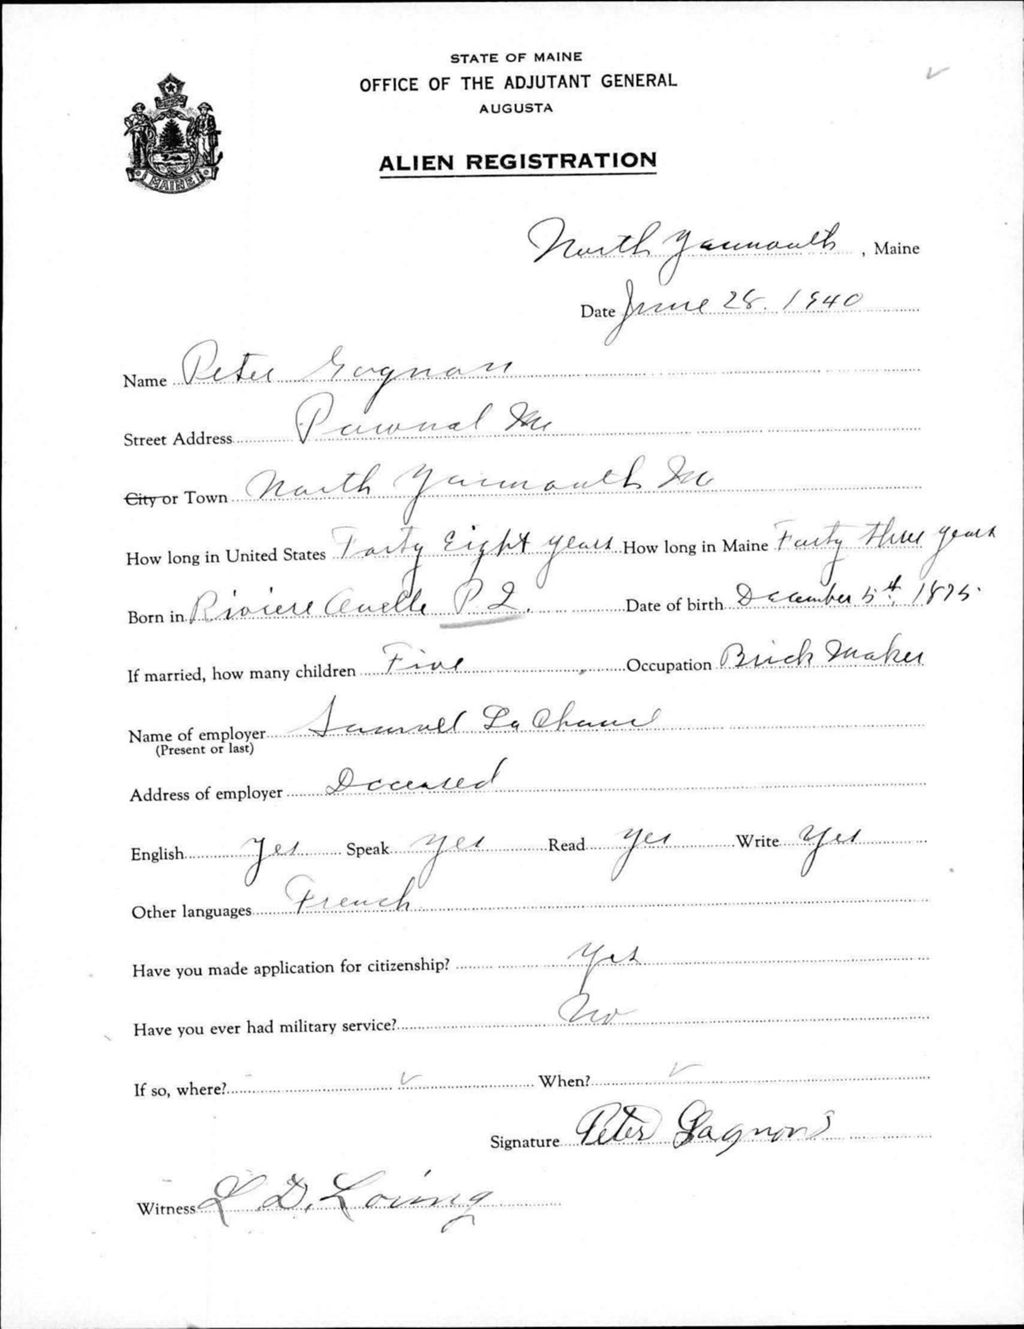 STATE OF MAINE
OFFICE OF THE ADJUTANT GENERAL
AUGUSTA
ALIEN REGISTRATION
MAINE
North Yarmouth, Maine
Date June 28. 1940
Name Peter Gagnon
Street Address Pownal Me
City or Town North Yarmouth Me
How long in United States Forty Eight years How long in Maine Forty three years
Born in Riviere Ouelle P Q. Date of birth December 5th 1875.
If married, how many children Five Occupation Brick Maker
Name of employer Samuel La Chance
(Present or last)
Address of employer Deceased
English Yes Speak yes Read yes Write yes
Other languages French
Have you made application for citizenship? Yes
Have you ever had military service? No
If so, where? When?
Signature Peter Gagnon
Witness L D. Loring